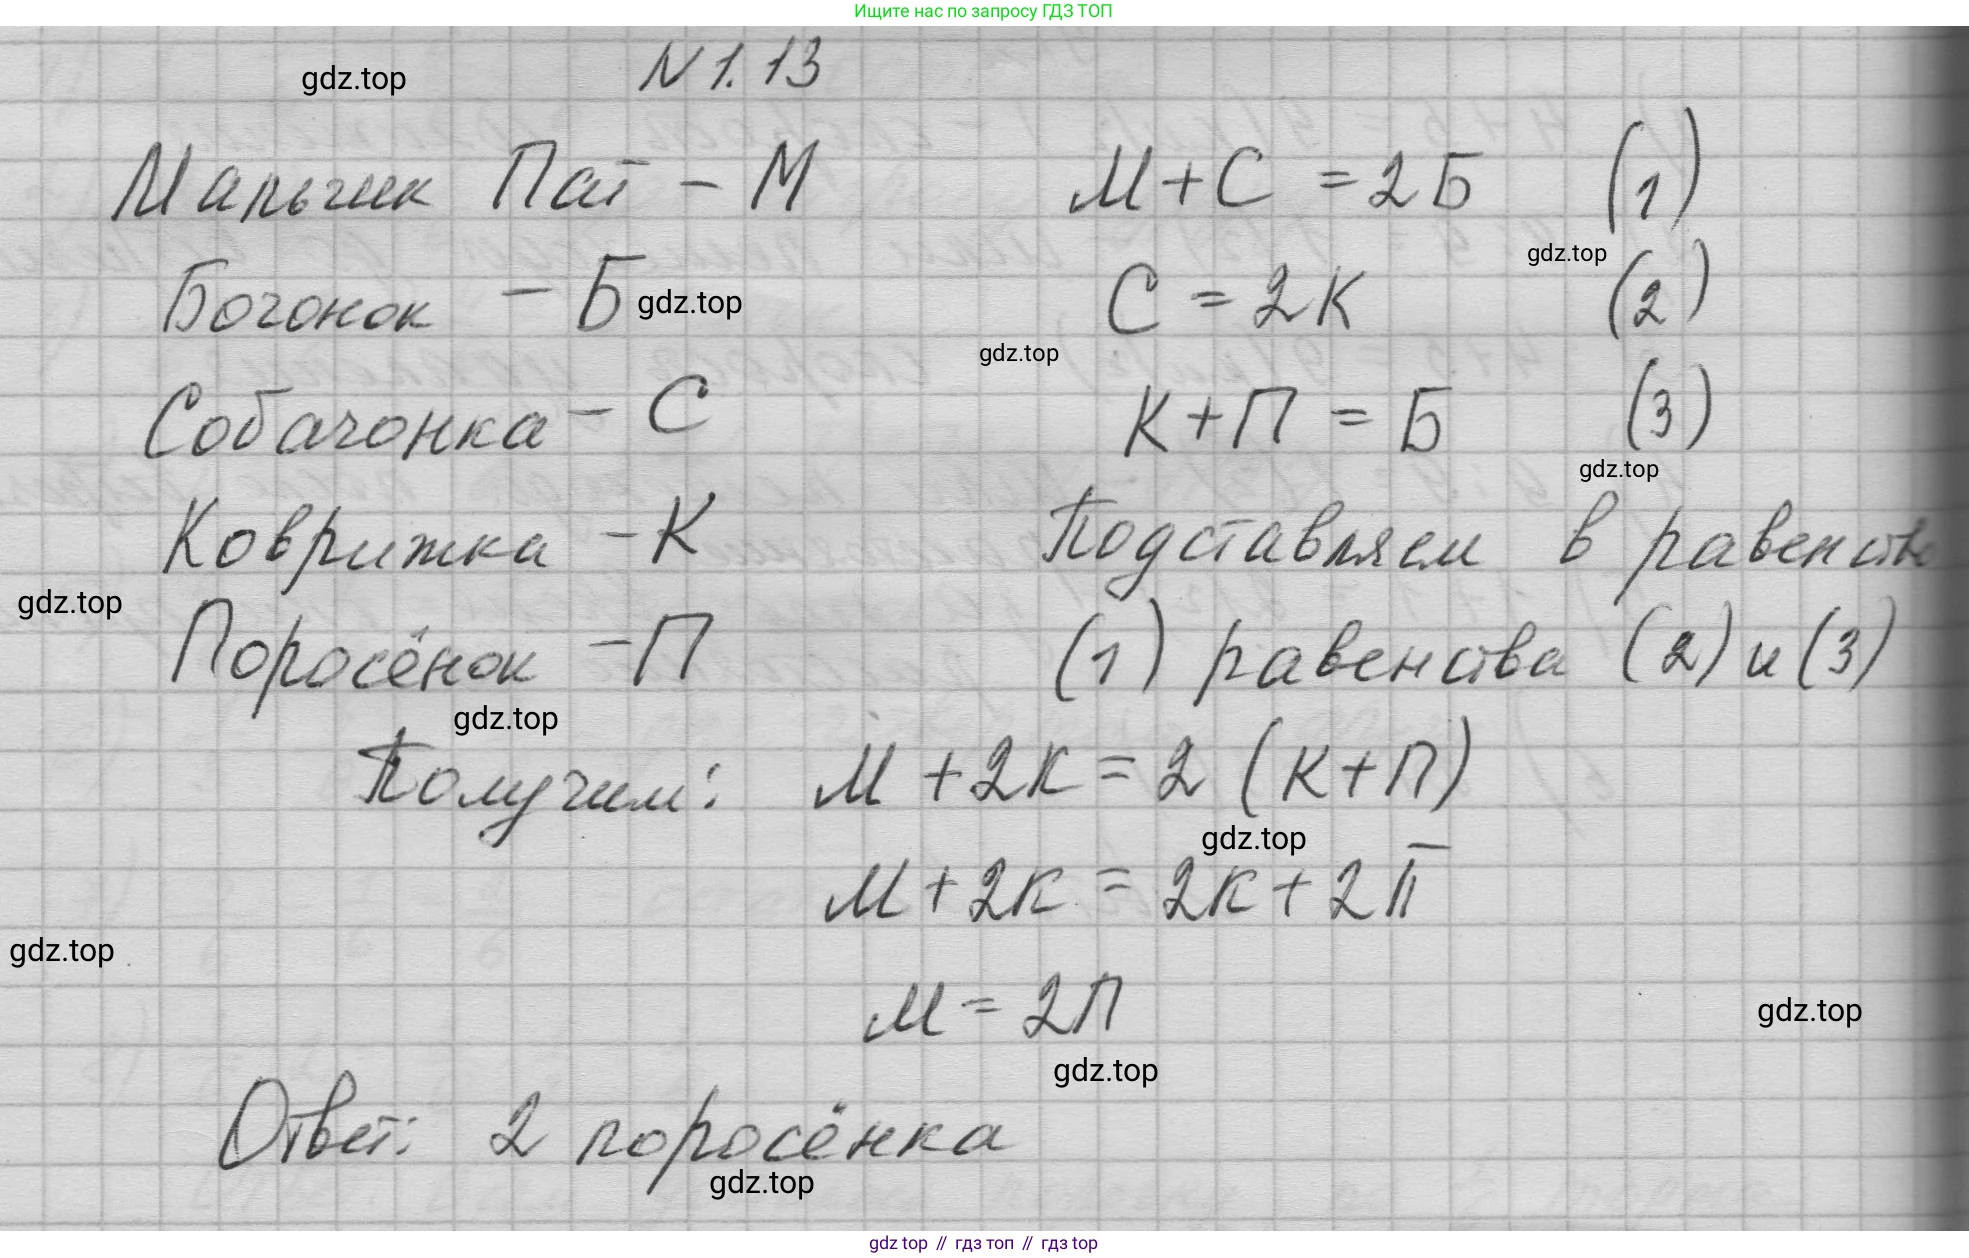 Ищите нас по запросу ГДЗ ТОП
N 1.13
gdz.top
Мальчик Пат – М
М + С = 2Б (1)
gdz.top
Бочонок – Б
gdz.top
С = 2К (2)
gdz.top
Собачонка – С
К + П = Б (3)
gdz.top
Коврижка – К
Подставляем в равенство
gdz.top
Поросёнок – П
(1) равенства (2) и (3)
gdz.top
Получим: М + 2К = 2 (К + П)
gdz.top
М + 2К = 2К + 2П
gdz.top
М = 2П
gdz.top
gdz.top
Ответ: 2 поросёнка
gdz.top
gdz top // гдз топ // гдз top